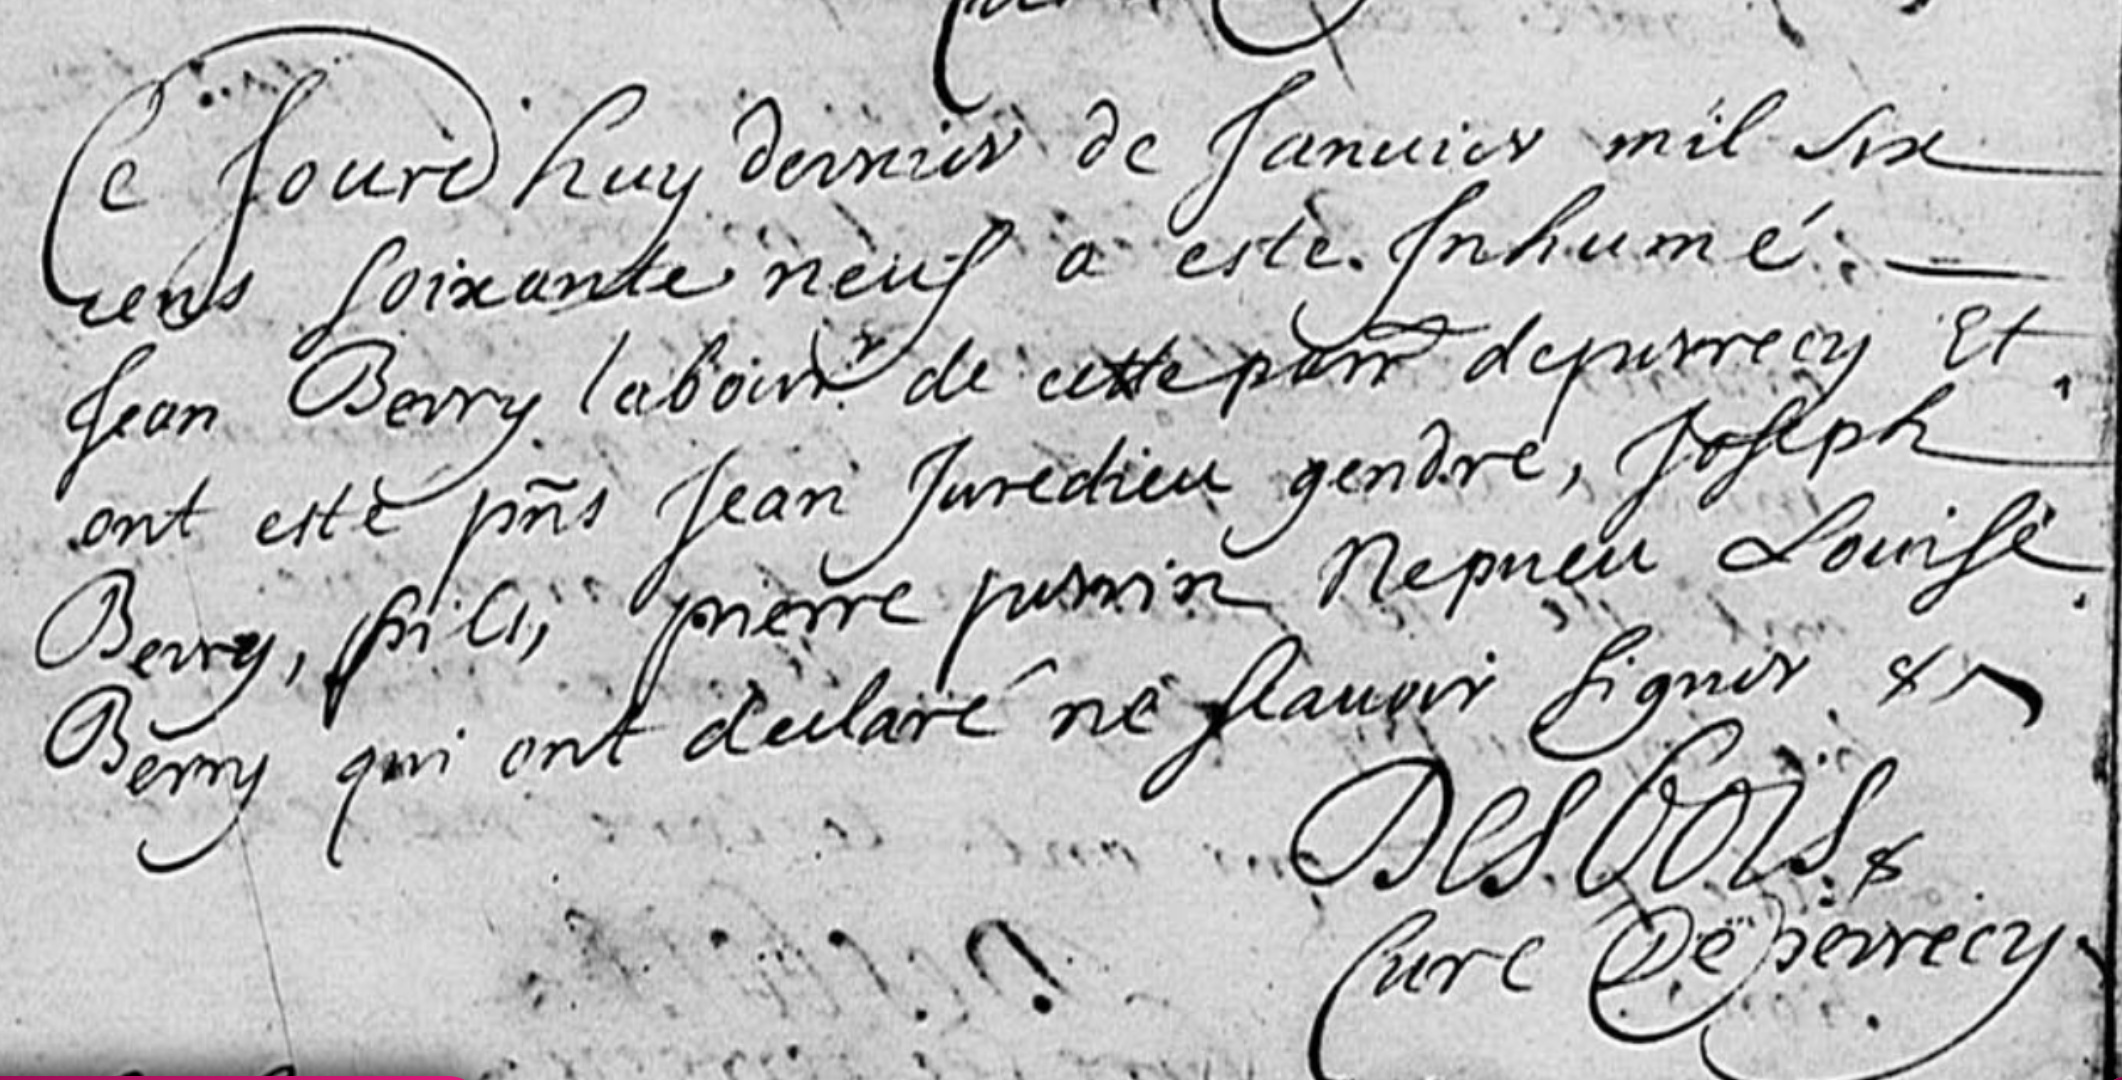 Ce Jourd huy dernier de Januier mil six
cens soixante neuf a esté Inhumé
Jean Berry labour de cette parr de perrecy Et
ont esté pñs Jean Juredieu gendre, Joseph
Berry, fils, pierre perrin Nepueu Louise
Berry qui ont declaré ne scauoir signer &
Desbois
Cure De perrecy